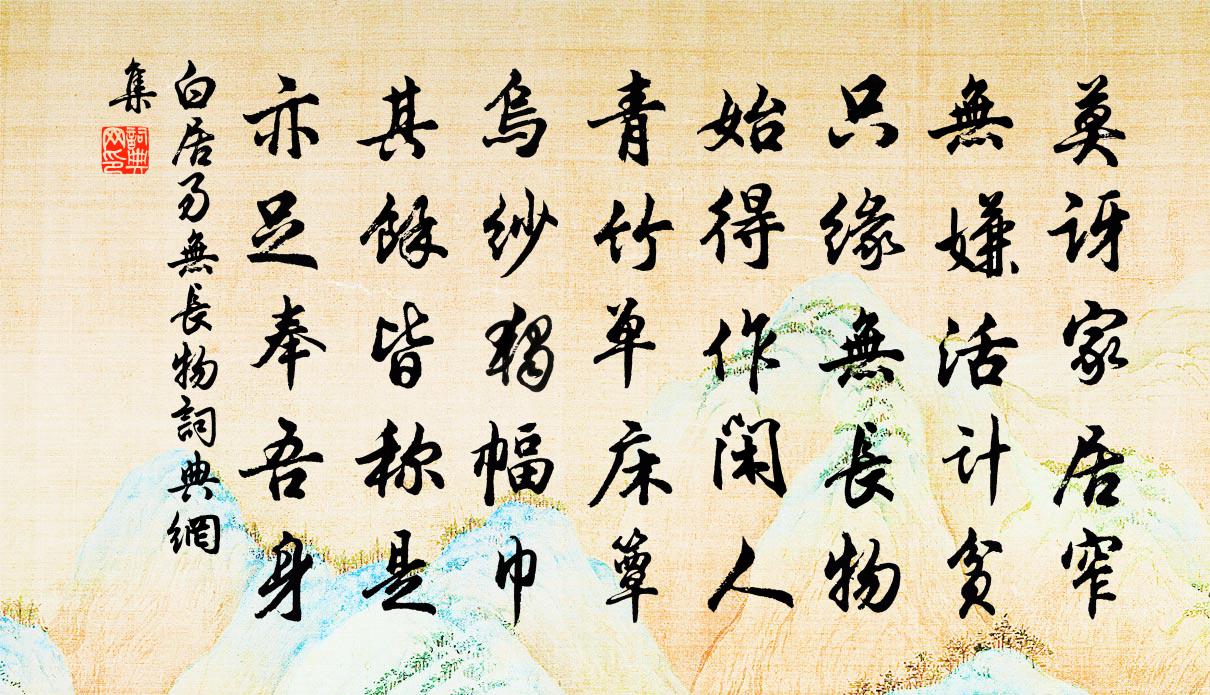 莫訝家居窄
無嫌活計貧
只緣無長物
始得作閑人
青竹单床簟
烏紗獨幅巾
其餘皆称是
亦足奉吾身
白居易無長物詞典網
集
詞典
网印